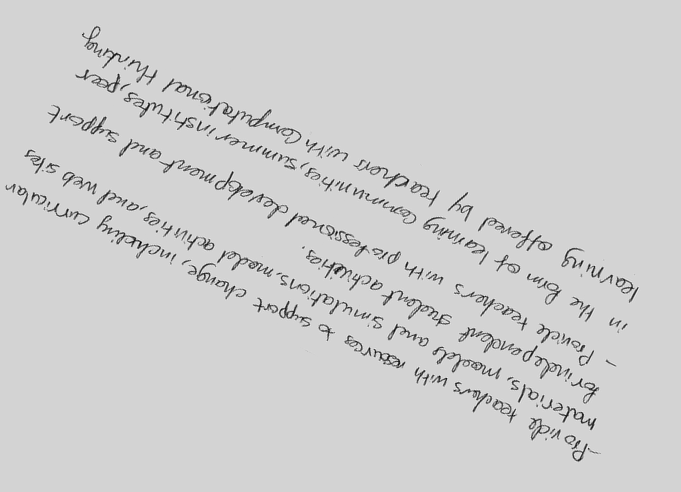 - Provide teachers with resources to support change, including curricular
materials, models and simulations, model activities, and web sites
for independent student activities.
- Provide teachers with professional development and support
in the form of learning communities, summer institutes, peer
learning offered by teachers with computational thinking